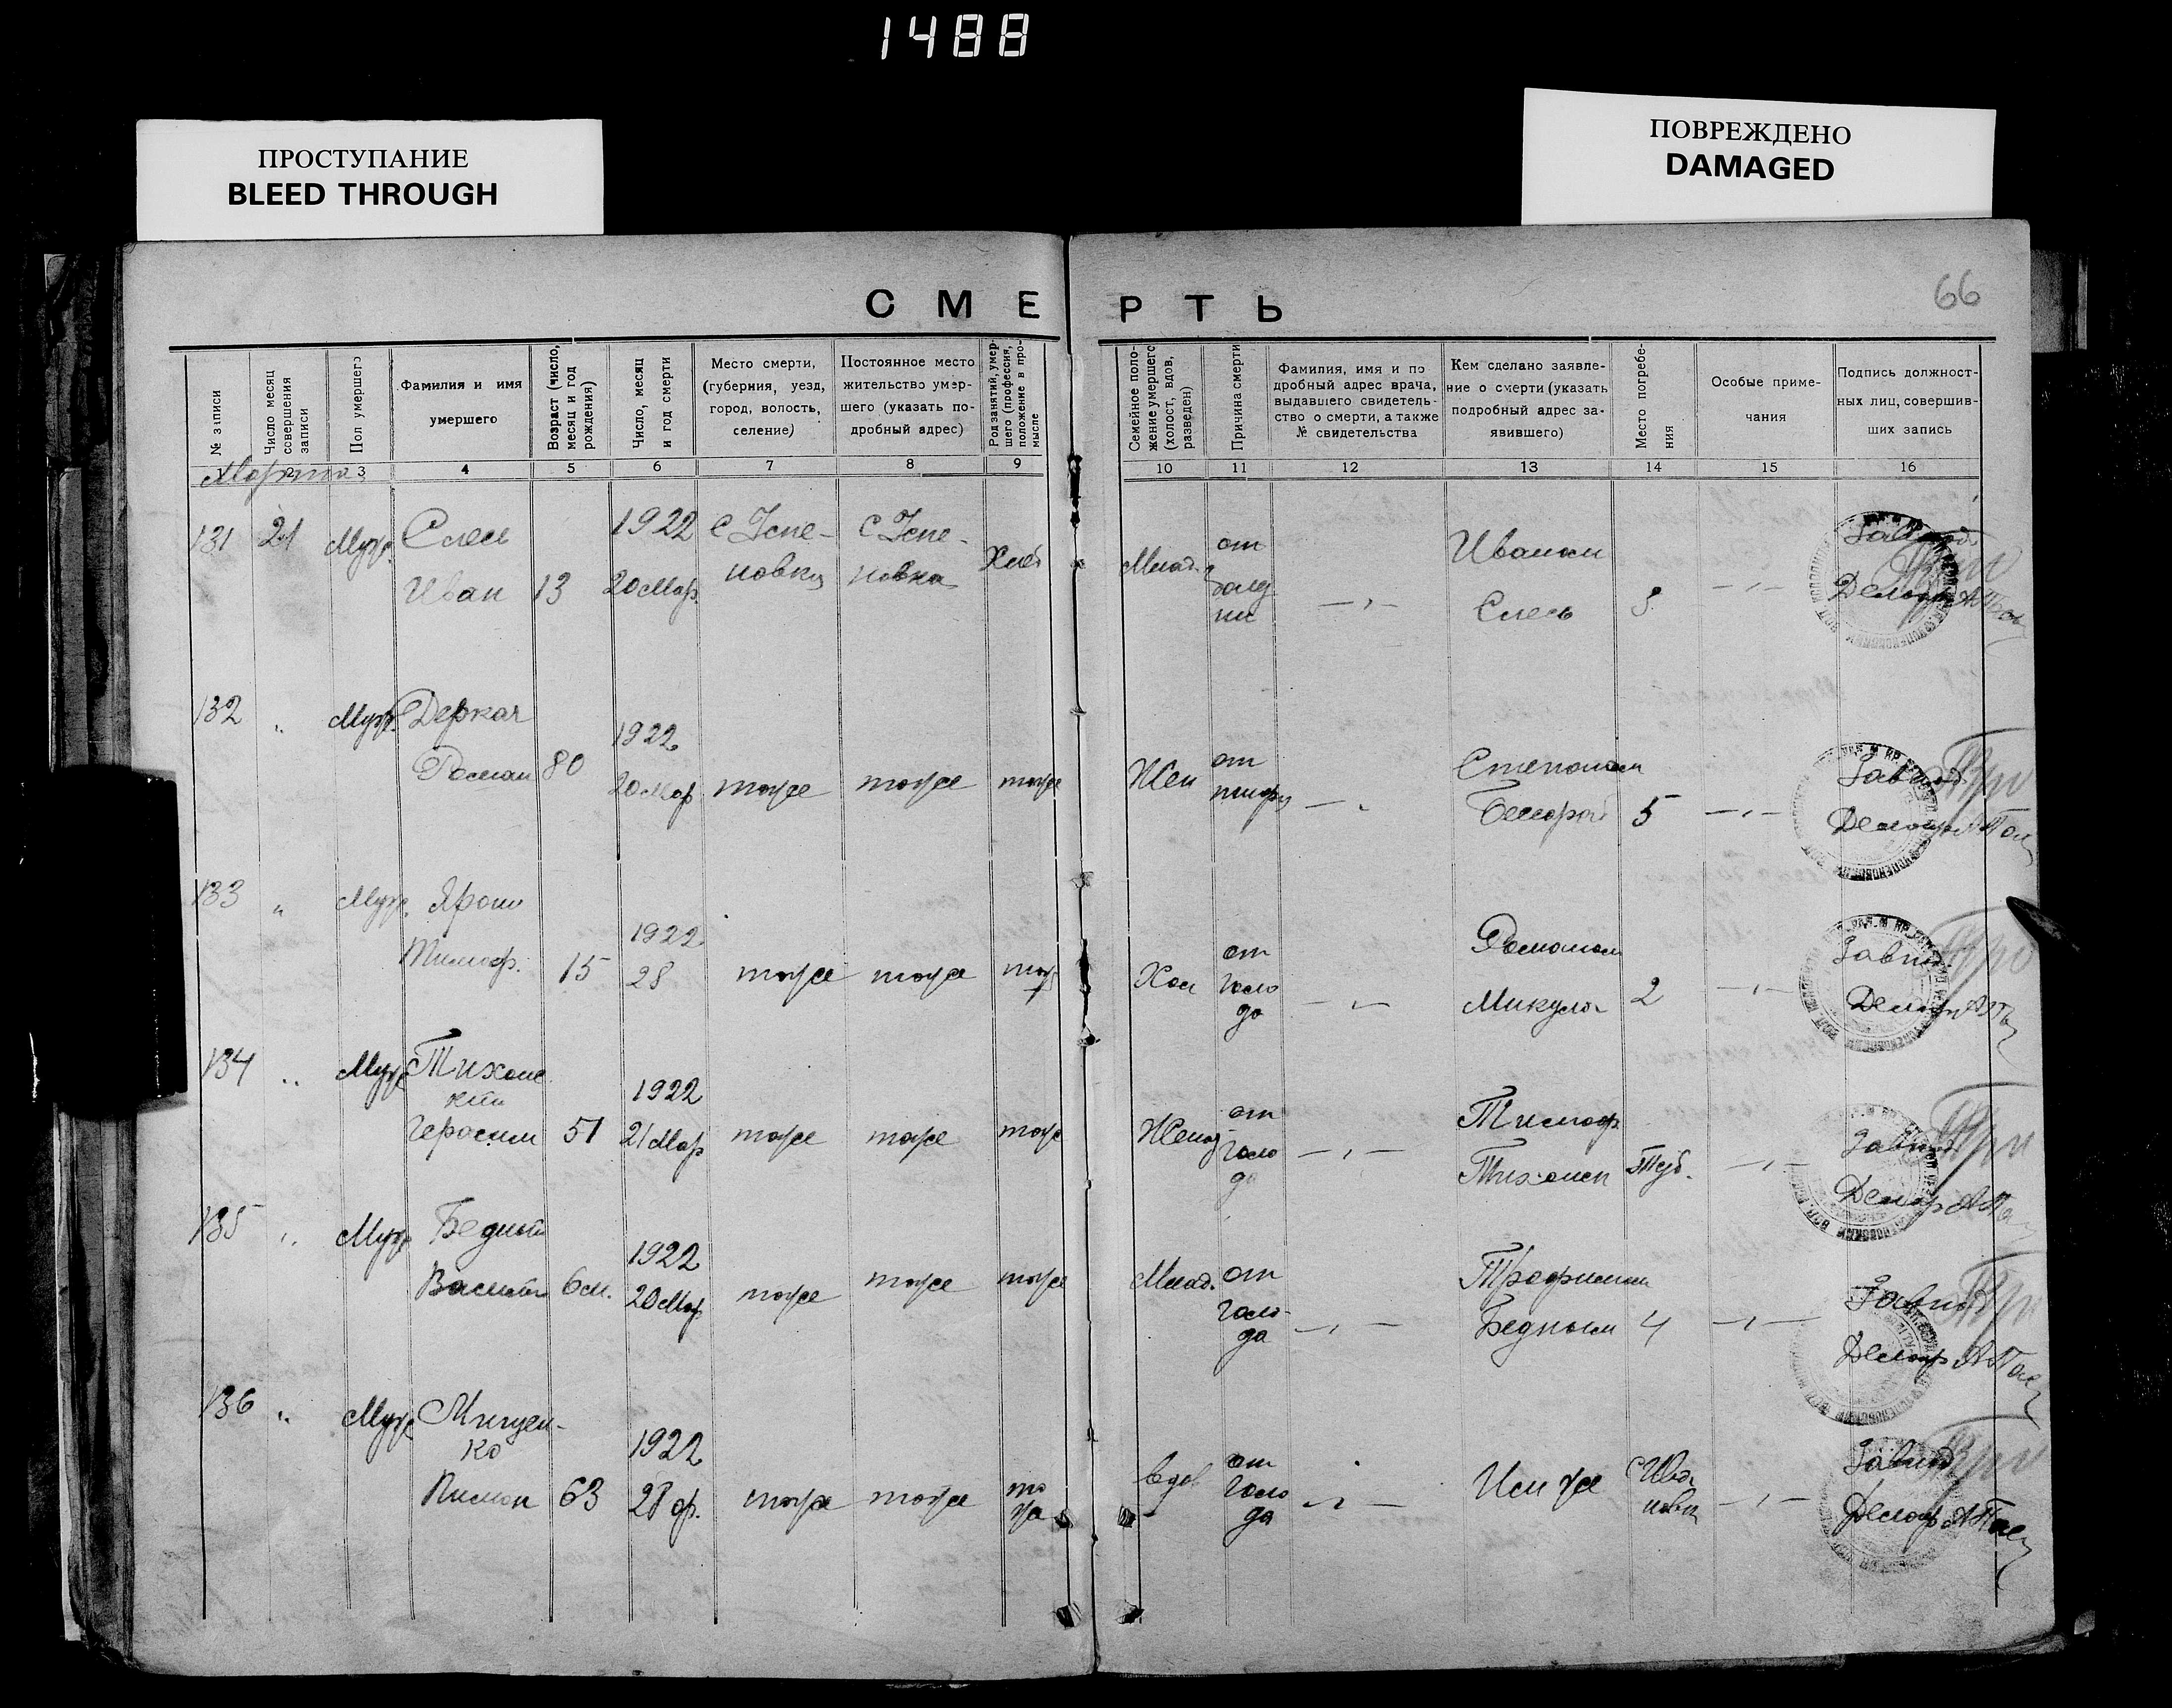 1488
ПРОСТУПАНИЕ
BLEED THROUGH
ПОВРЕЖДЕНО
DAMAGED
66
СМЕРТЬ
№ записи
Число месяц совершения записи
Пол умершего
Фамилия и имя
умершего
Возраст (число, месяц и год рождения)
Число, месяц и год смерти
Место смерти,
(губерния, уезд,
город, волость,
селение)
Постоянное место
жительство умер-
шего (указать по-
дробный адрес)
Род занятий, умер-
шего (профессия,
положение в про-
мысле
Семейное поло-
жение умершего
(холост, вдов,
разведен)
Причина смерти
Фамилия, имя и по
дробный адрес врача,
выдавшего свидетель-
ство о смерти, а также
№ свидетельства
Кем сделано заявле-
ние о смерти (указать
подробный адрес за-
явившего)
Место погребе-
ния
Особые приме-
чания
Подпись должност-
ных лиц, совершив-
ших запись
3 4 5 6 7 8 9 10 11 12 13 14 15 16
Марта
131 21 Муж. Слесь 1922 с Успе- с Успе-
Иван 13 20 Мар. новка новка Хлеб Млад. от
Иваном
Слесь
Завпод
Делопр
132 " Муж. Деркач 1922
Роман 80 20 Мар тоже тоже тоже Жен от
Степаном
5
Завпод
Делопр
133 " Муж. Ярош 1922
Тимоф. 15 28 тоже тоже тож Хол от
голо
да
Романом
Микула 2
Завпод
Делопр
134 " Муж Тихоне
Герасим 51 1922
21 Мар тоже тоже тоже Женат от
голо
да
Тимоф
Тихонен
Завпод
Делопр
135 " Муж Бедный 1922
Василий 6 м. 20 Мар тоже тоже тоже Млад. от
голо-
да
Трофимом
Бедным 4
Завпод
Делопр
136 " Муж Мищен-
ко 1922
Пимон 63 28 ф. тоже тоже то
же вдов от
голо
да
Им же
Завпод
Делопр